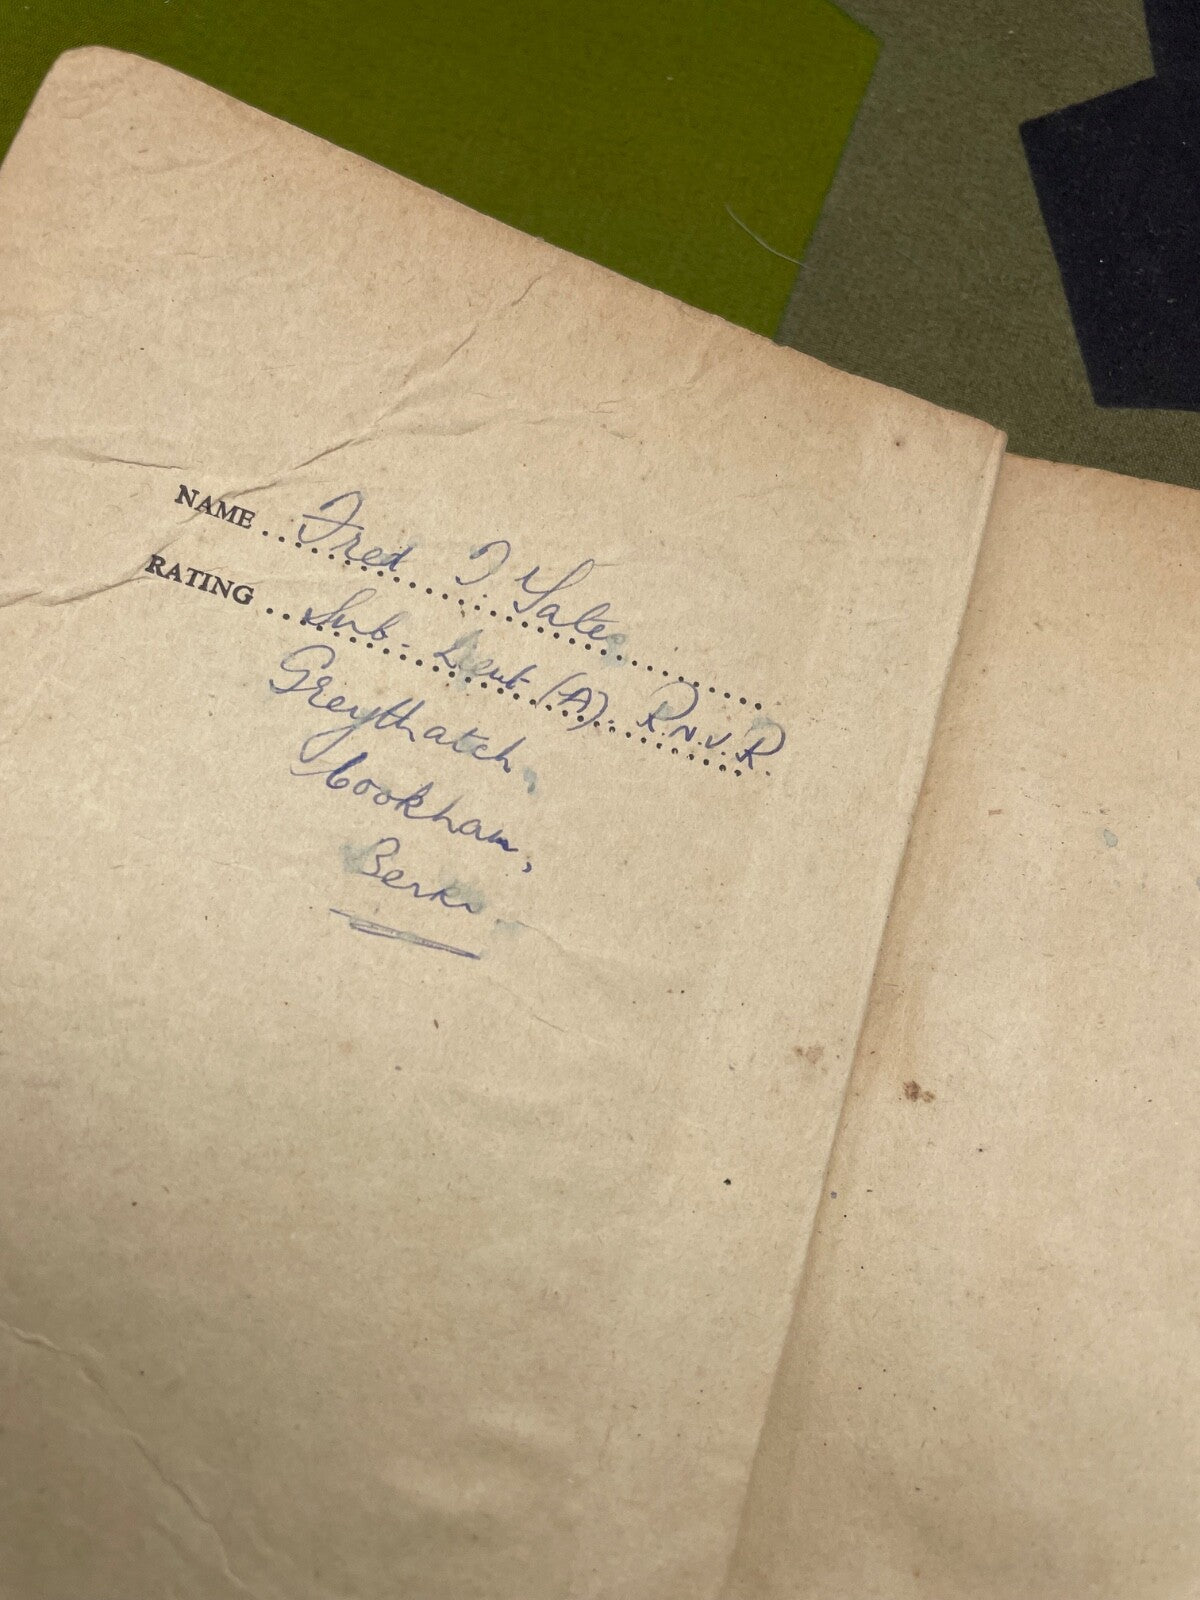 NAME Fred J Yates
RATING Sub-Lieut (A). R.N.V.R.
Greythatch,
Cookham,
Berks.